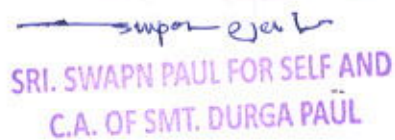 SRI. SWAPN PAUL FOR SELF AND
C.A. OF SMT. DURGA PAUL